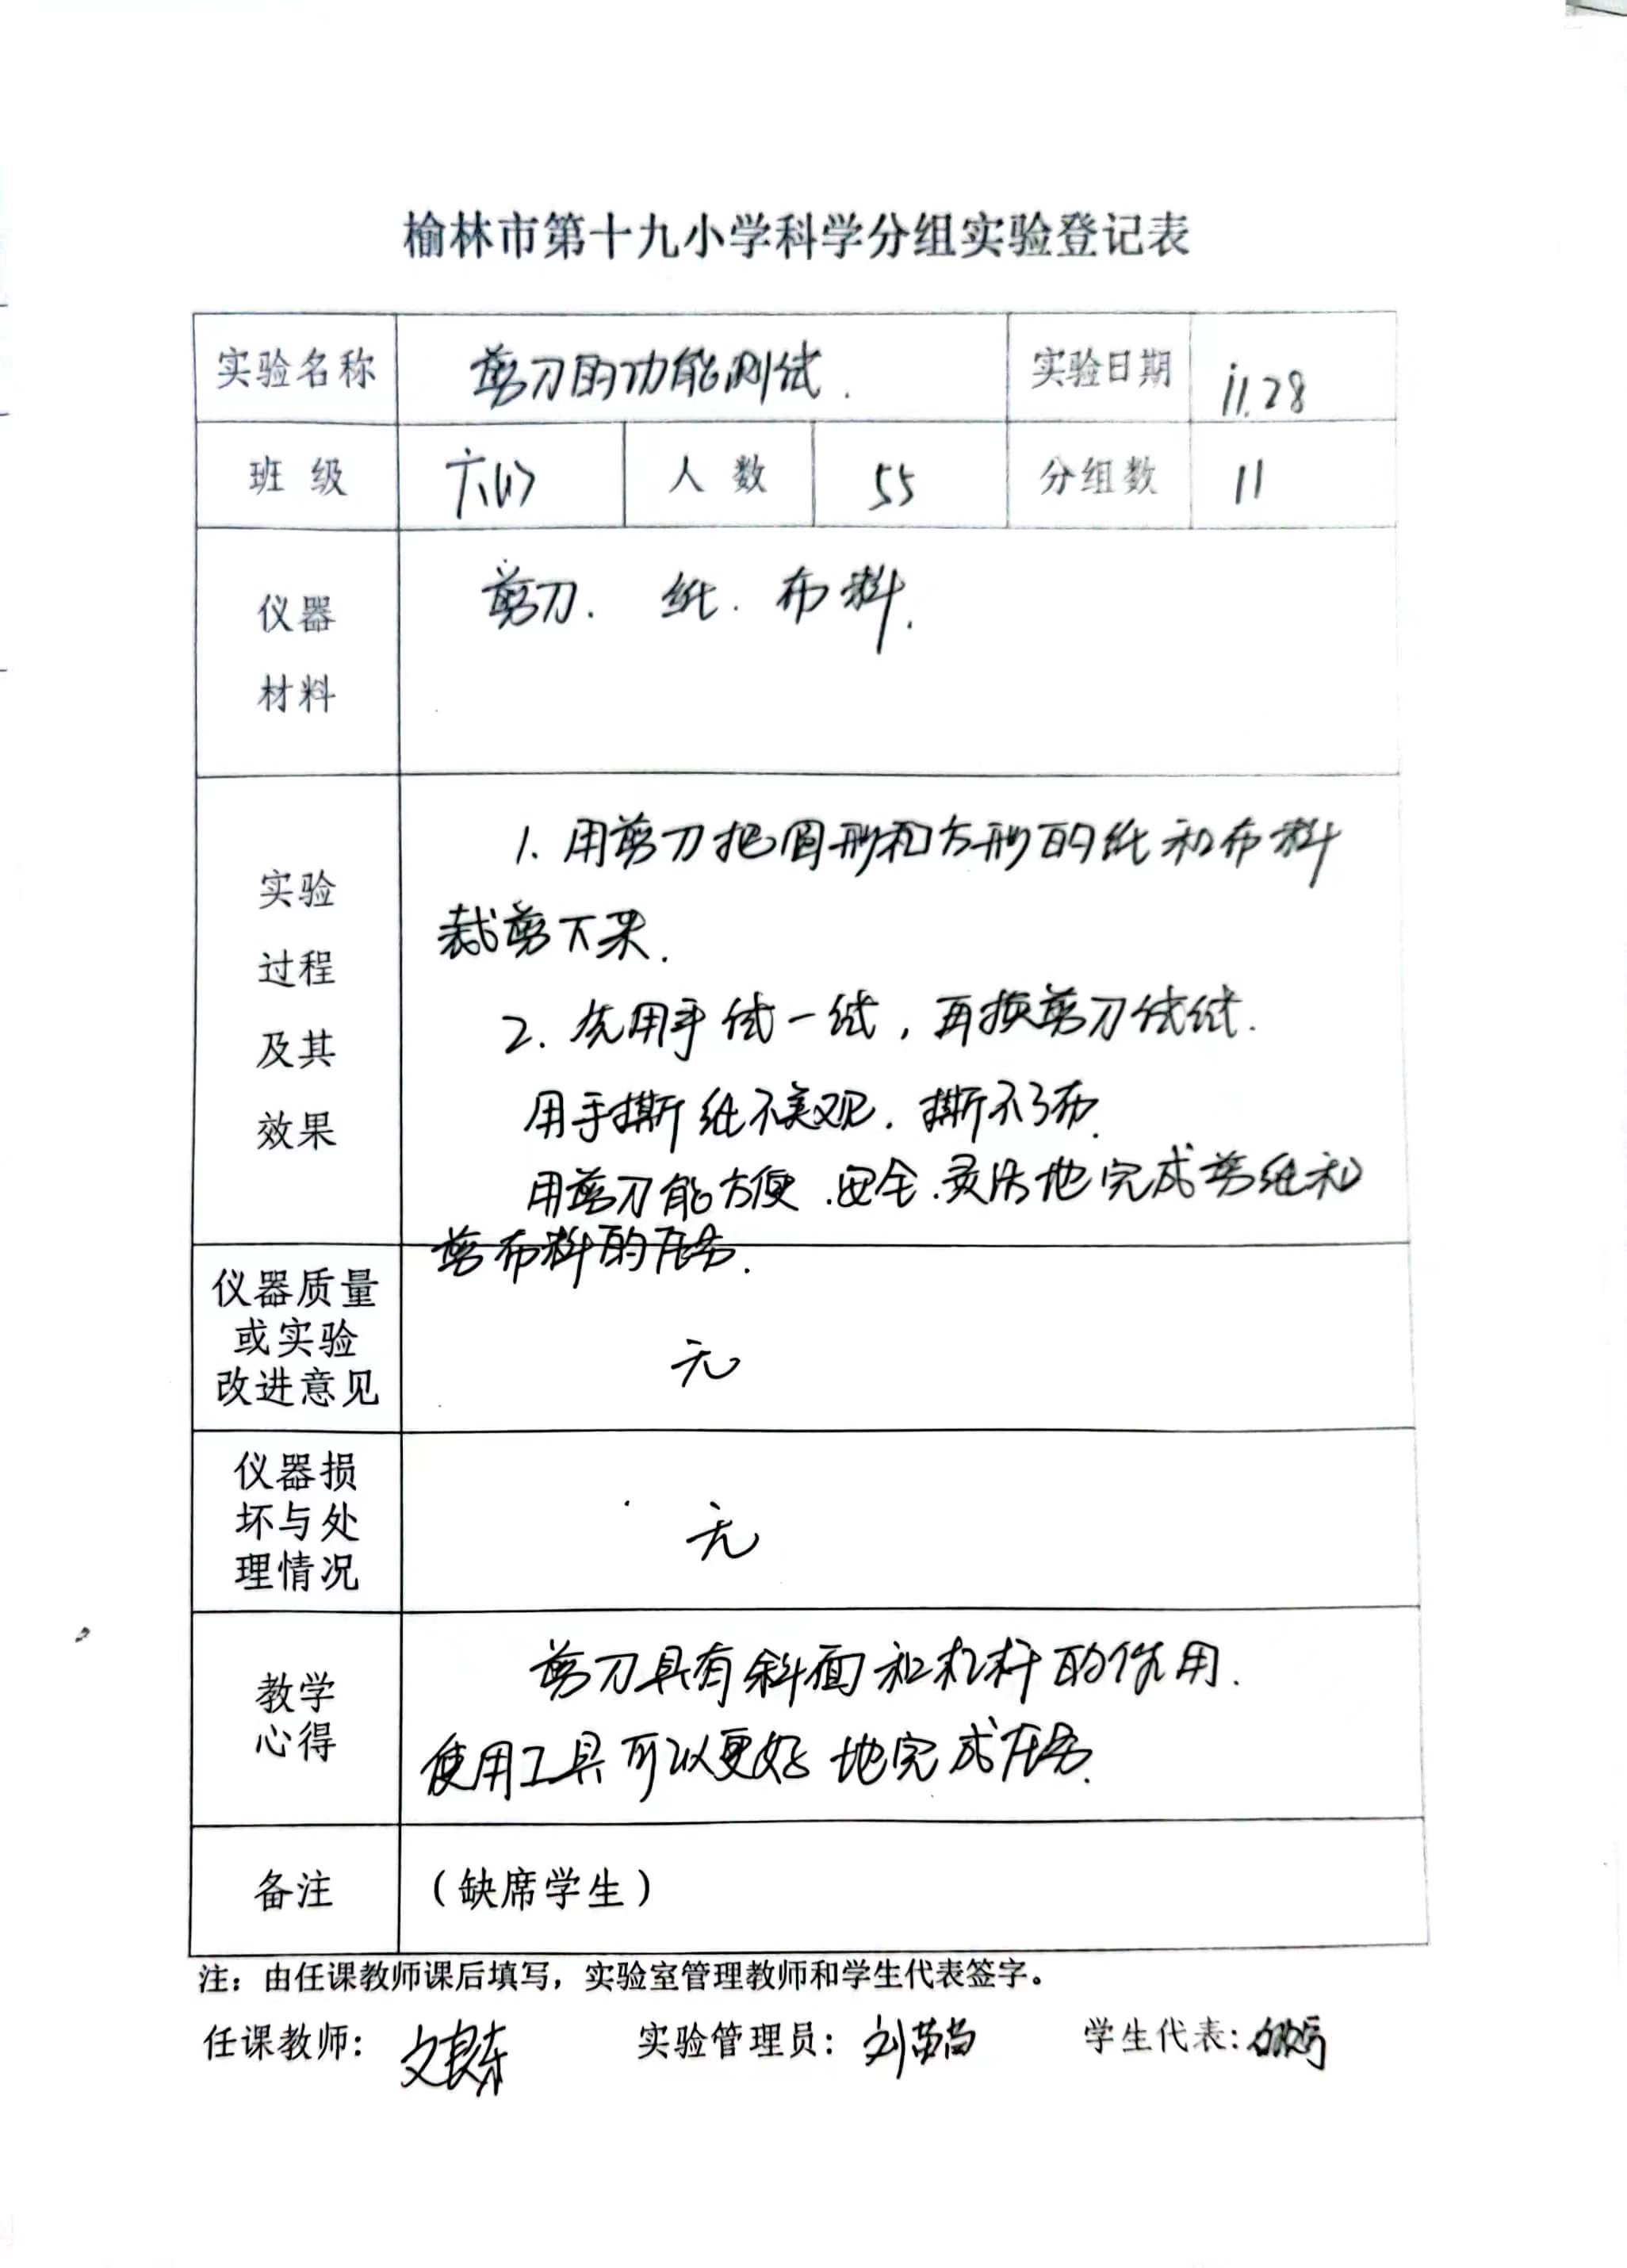 榆林市第十九小学科学分组实验登记表
实验名称 剪刀的功能测试. 实验日期 11.28
班 级 六(1) 人 数 55 分组数 11
仪器
材料
剪刀. 纸. 布料.
实验
过程
及其
效果
1. 用剪刀把圆形和方形的纸和布料
裁剪下来.
2. 先用手试一试, 再换剪刀试试.
用手撕纸不美观. 撕不了布.
用剪刀能方便.安全.灵活地完成剪纸和
剪布料的任务.
仪器质量
或实验
改进意见
无
仪器损
坏与处
理情况
无
教学
心得
剪刀具有斜面和杠杆的作用.
使用工具可以更好地完成任务.
备注 (缺席学生)
注：由任课教师课后填写，实验室管理教师和学生代表签字。
任课教师： 文良东 实验管理员： 刘苗苗 学生代表：